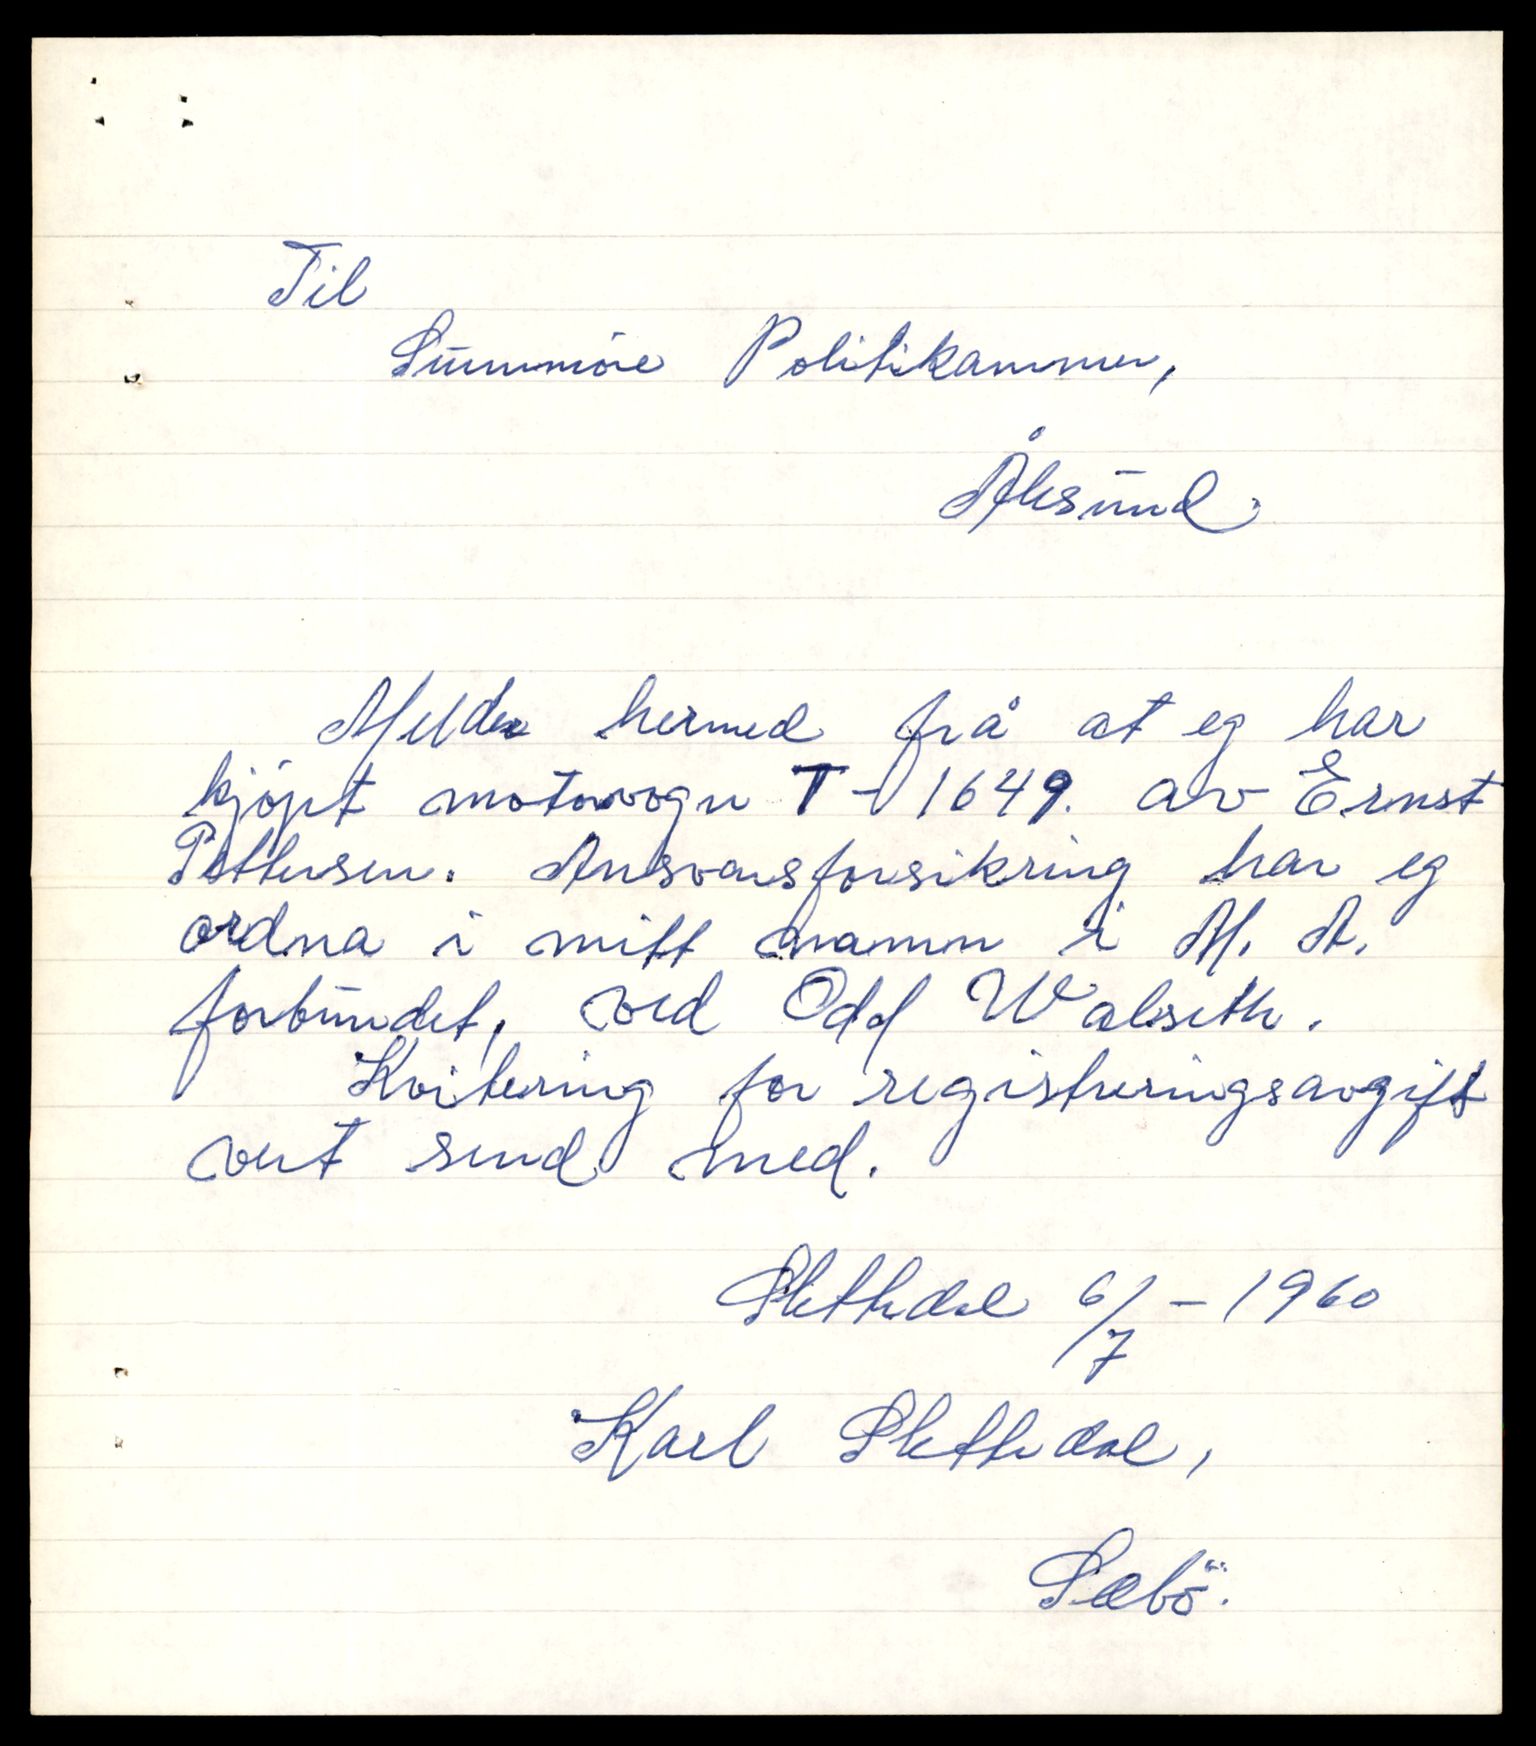 Til
Sunnmøre Politikammer,
Ålesund.
Melder hermed frå at eg har
kjöpt motorvogn T-1649. av Ernst
Pettersen. Ansvarsforsikring har eg
ordna i mitt namn i M. A.
forbundet, ved Odd Walseth.
Kvitering for registreringsavgift
vert send med.
Slettedal 6/7 - 1960
Karl Slettedal,
Sæbö.